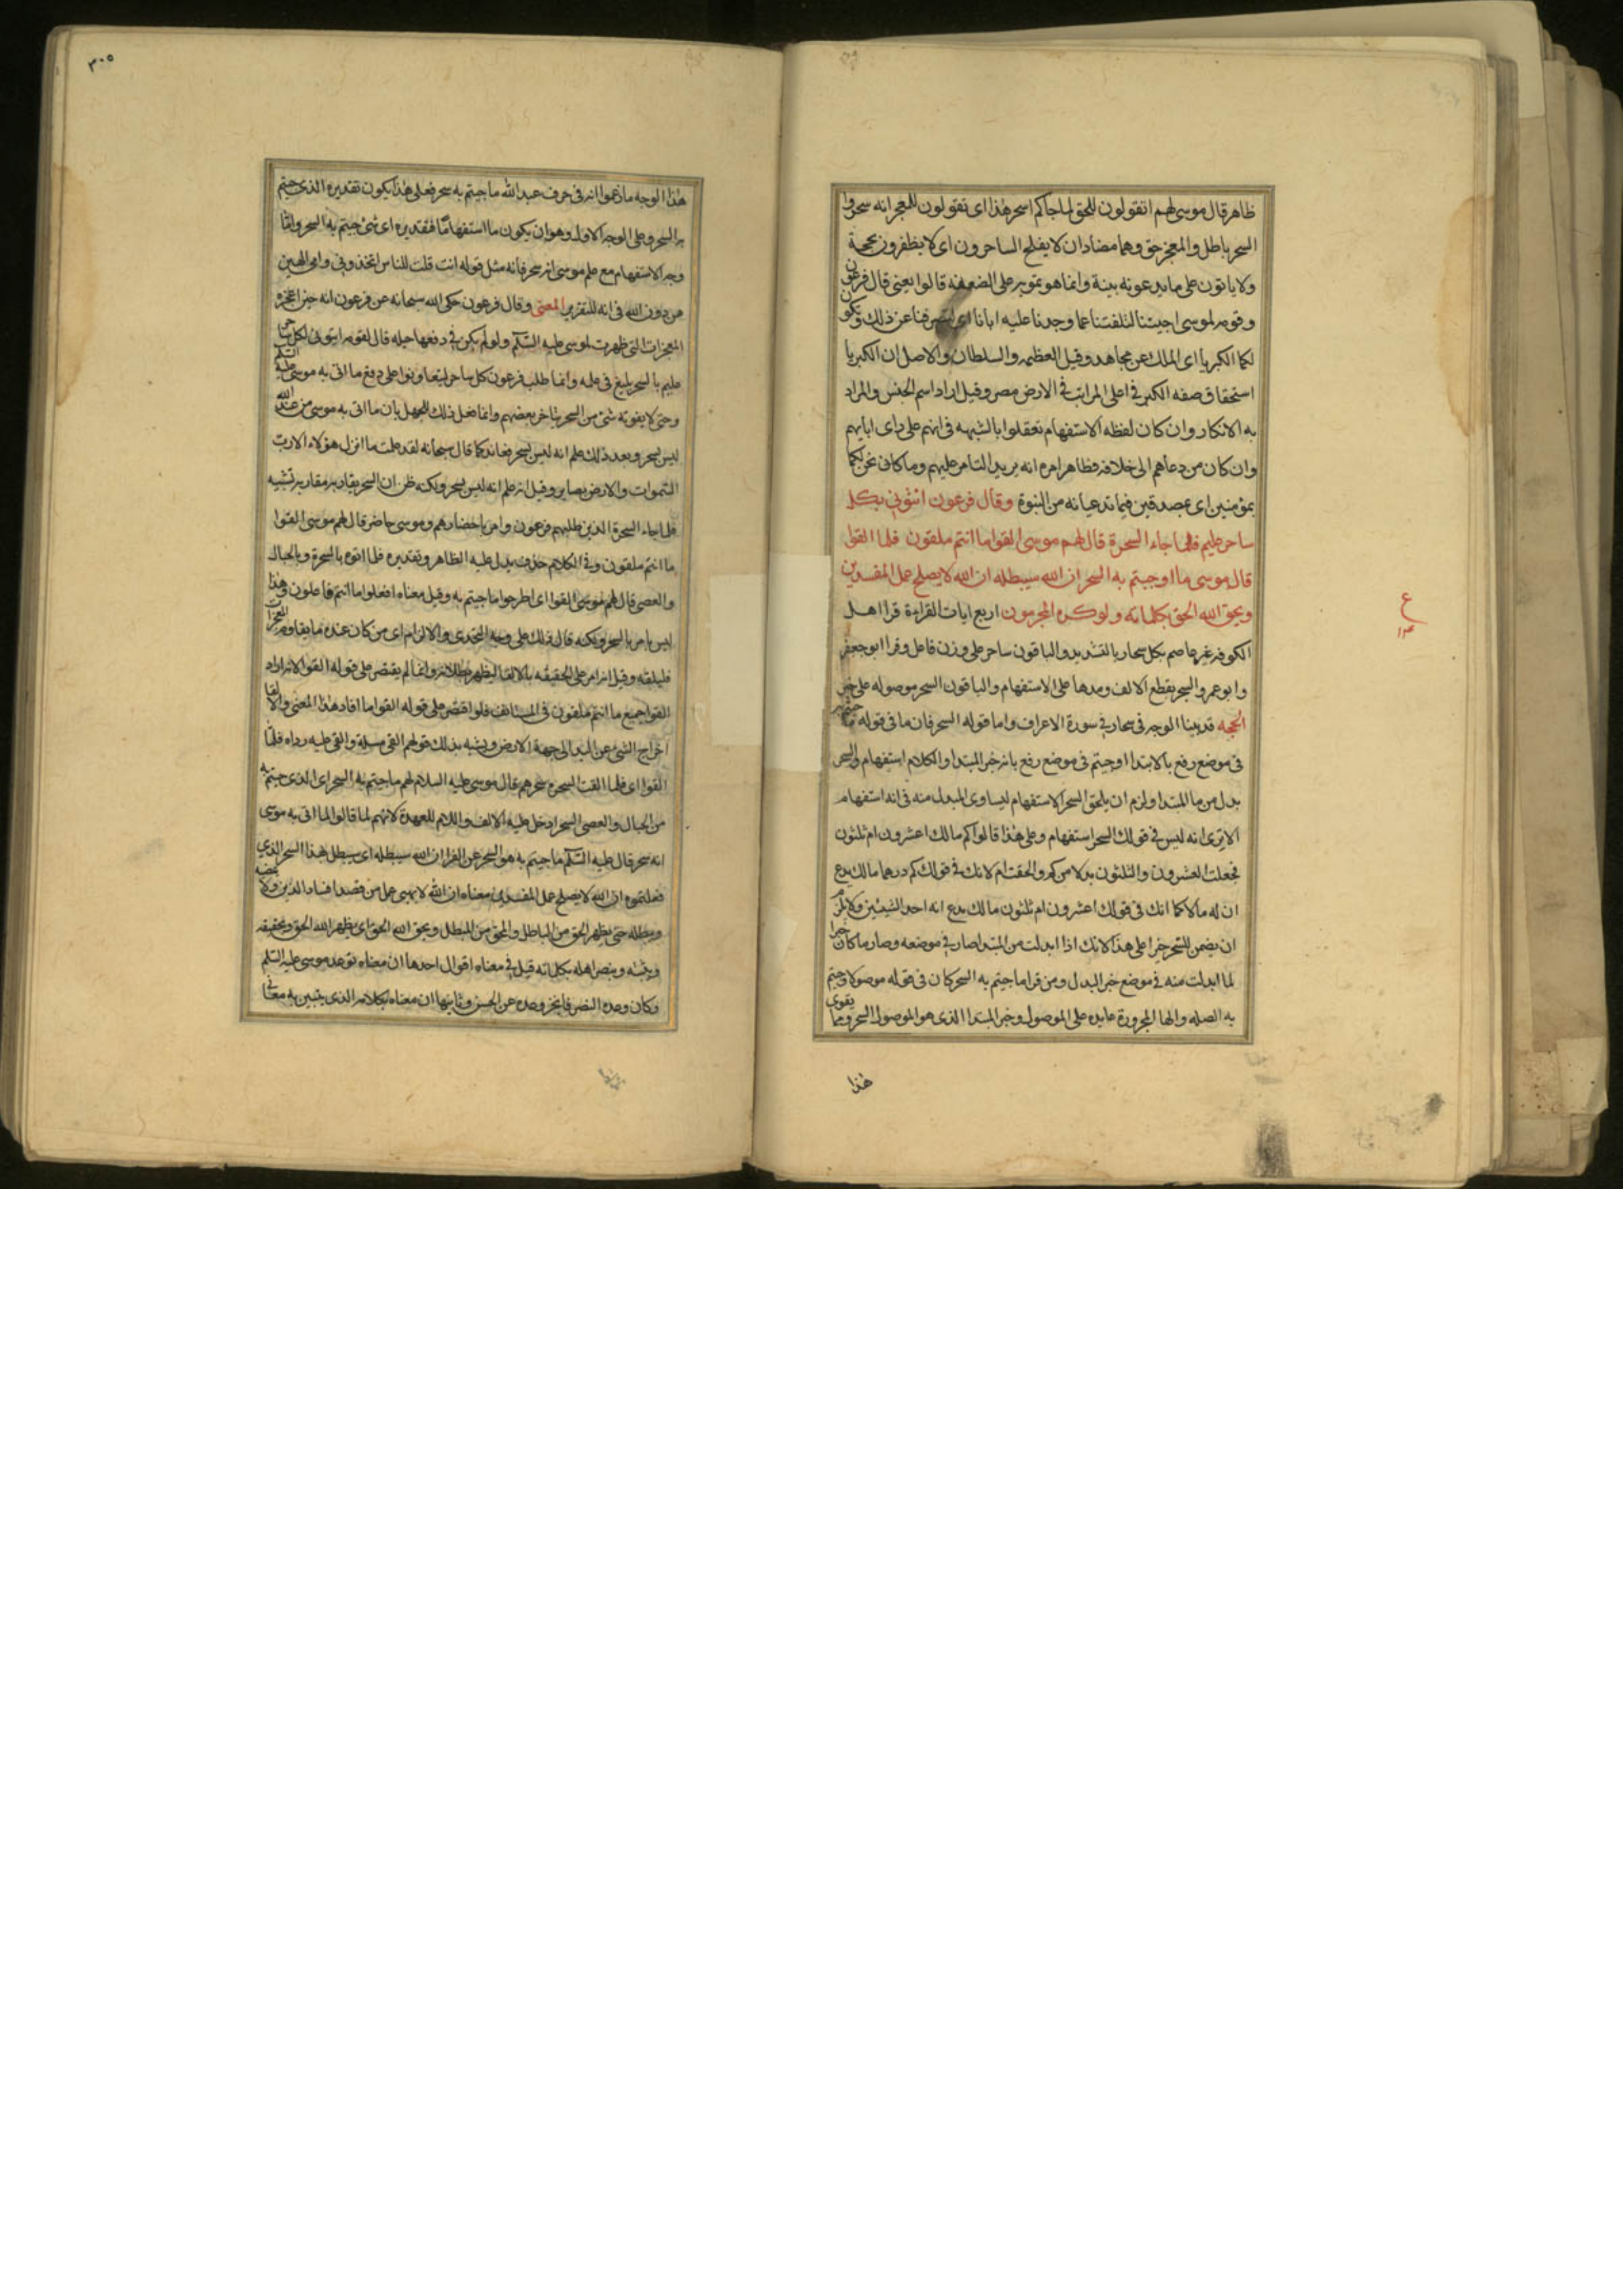 ظاهر قال موسى لهم اتقولون للحق لما جاكم اسحر هذا اى تقولون للمعجر انه سحر وا
السحر باطل والمعجز حق وهما مضادان لا يفلح الساحرون اى لا يظفرون بحجة
ولا ياتون على ما يدعونه ببينة وانما هو تمويه على الضعفة قالوا يعنى قال فرعون
وقومه لموسى اجيتنا لتلفتنا عما وجدنا عليه ابانا اى لتصرفنا عن ذلك وتكون
لكما الكبريا اى الملك عن مجاهد وقيل العظمه والسلطان والاصل ان الكبريا
استحقاق صفه الكبر فى اعلى المراتب فى الارض مصر وقيل اراد اسم الجنس والمراد
به الانكار وان كان لفظه الاستفهام تعقلوا بالشبهه فى انهم على راى ابايهم
وان كان من دعاهم الى خلافه فظاهر امره انه يريد التامر عليهم وما كا فى نحن لكما
بمؤمنين اى بمصدقين فيما تدعيانه من النبوة وقال فرعون ائتونى بكل
ساحر عليم فلما جاء السحرة قال لهم موسى القوا ما انتم ملقون فلما القوا
قال موسى ما اوجبتم به السحر ان الله سيبطله ان الله لا يصلح عمل المفسدين
ويحق الله الحق بكلماته ولو كره المجرمون اربع ايات القراءة قرا اهل
الكوفه غير عاصم بكل سحار بالتشديد والباقون ساحر على وزن فاعل وقرا ابو جعفر
وابو عمرو السحر بقطع الالف ومدها على الاستفهام والباقون السحر موصوله على خبر
الحجه قد بينا الوجه فى سحار فى سورة الاعراف واما قوله السحر فان ما فى قوله ما جيتم به
فى موضع رفع بالابتدا او جيتم فى موضع رفع بانه خبر المبتدا والكلام استفهام والسحر
بدل من ما المبتدا ولزم ان يلحق السحر الاستفهام ليساوى المبدل منه فى انه استفهام
الا ترى انه ليس فى قولك السحر استفهام وعلى هذا قالوا كم مالك اعشرون ام ثلثون
فجعلت العشرون والثلثون بدلا من كم والحقت ام لانك فى قولك كم درهما مالك يدع
ان له مالا كما انك فى قولك اعشرون ام ثلثون مالك يدع انه احد الشيئين ولا يلزم
ان يضمن للسحر خبرا على هذا لانك اذا ابدلت من المبتدا صار فى موضعه وصار ما كان خبرا
لما ابدلت منه فى موضع خبر البدل ومن قرا ما جيتم به السحر كان فى قوله موصولا وجيتم
به الصله والها المجرورة عايده على الموصول وخبر المبتدا الذى هو الموصول السحر ومما يقوى
هذا
ع
١٣
٣٠٥
هذا الوجه ما زعموا انه فى حرف عبد الله ما جيتم به سحر فعلى هذا يكون تقديره الذى جيتم
به السحر وعلى الوجه الاول وهو ان يكون ما استفهاما فتقديره اى شئ جيتم به السحر وانما
وجه الاستفهام مع علم موسى انه سحر فانه مثل قوله انت قلت للناس اتخذونى وامى الهين
من دون الله فى انه للتقرير المعنى وقال فرعون حكى الله سبحانه عن فرعون انه حين اعجزه
المعجزات التى ظهرت لموسى عليه السلم ولو لم يكن فى دفعها حيله قال لقومه ايتونى لكل ساحر
عليم بالسحر بليغ فى علمه وانما طلب فرعون كل ساحر ليتعاونوا على دفع ما اتى به موسى عليه السلم
وحتى لا يفوته شئ من السحر بتاخر بعضهم وانما فعل ذلك للجهل بان ما اتى به موسى من عند الله
ليس بسحر وبعد ذلك علم انه ليس بسحر فعاند كما قال سبحانه لقد علمت ما انزل هؤلاء الا رب
السموات والارض بصاير وقيل انه علم انه ليس بسحر ولكنه ظن ان السحر يقاربه مقاربه تشبيه
فلما جاء السحرة الذين طلبهم فرعون وامر باحضارهم وموسى حاضر قال لهم موسى القوا
ما انتم ملقون وفى الكلام حذف يدل عليه الظاهر وتقديره فلما اتوه بالسحرة وبالحبال
والعصى قال لهم موسى القوا اى اطرحوا ما جيتم به وقيل معناه افعلوا ما انتم فاعلون وهذا
ليس بامر بالسحر ولكنه قال ذلك على وجه التحدى والالزام اى من كان عنده ما يقاوم المعجزات
فليلقه وقيل انه امر على الحقيقه بالالقا ليظهر بطلانه وانما لم يقتصر على قوله القوا لانه اراد
القوا جميع ما انتم ملقون فى المستانف فلو اقتصر على قوله القوا ما افاد هذا المعنى والالقا
اخراج الشئ عن اليد الى جهة الارض ويشبه بذلك قولهم القى مسلة والقى عليه رداه فلما
القوا اى فلما القت السحره سحرهم قال موسى عليه السلام لهم ما جيتم به السحر اى الذى جيتم به
من الحبال والعصى السحر ادخل عليه الالف واللام للعهدة لانهم لما قالوا لما اتى به موسى
انه سحر قال عليه السلم ما جيتم به هو السحر عن الفرا ان الله سيبطله اى سيبطل هذا السحر الذى
فعلتموه ان الله لا يصلح عمل المفسدين معناه ان الله لا يهيى عمل من قصد افساد الدين ولا يمضيه
ويبطله حتى يظهر الحق من الباطل والمحق من المبطل ويحق الله الحق اى يظهر الله الحق ويحققه
ويثبته وينصر اهله بكلماته قيل فى معناه اقوال احدها ان معناه بوعد موسى عليه السلم
وكان وعده النصر فانجز وعده عن الحسن وثانيها ان معناه بكلامه الذى يتبين به معانى